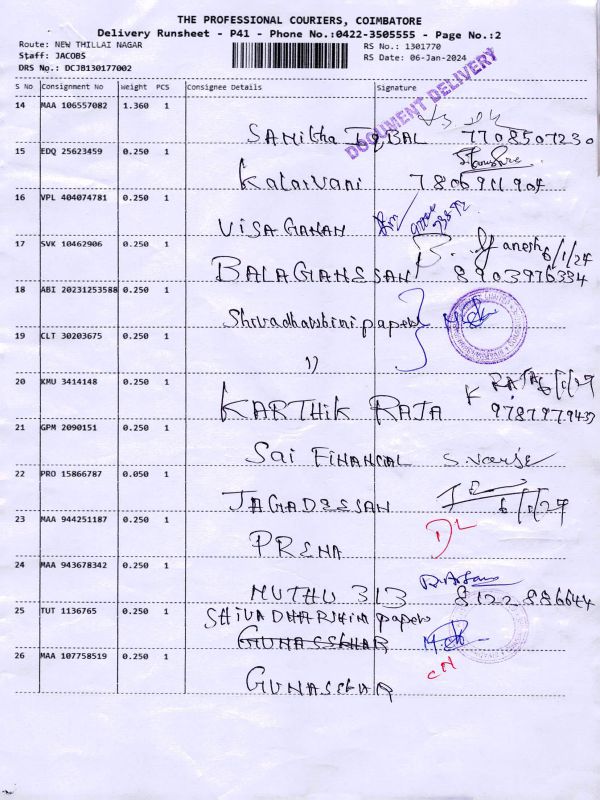 THE PROFESSIONAL COURIERS, COIMBATORE
Delivery Runsheet - P41 - Phone No.:0422-3505555 - Page No.:2
Route: NEW THILLAI NAGAR
Staff: JACOBS
DRS No.: DCJB130177002
RS No.: 1301770
RS Date: 06-Jan-2024
S No Consignment No Weight PCS Consignee Details Signature
DOCUMENT DELIVERY
14 MAA 106557082 1.360 1
SANitha IQBAL 7708507230
15 EDQ 25623459 0.250 1
Kalaivani 7806911904
16 VPL 404074781 0.250 1
VISAGANAN
17 SVK 10462906 0.250 1
B. Ganesh 6/1/24
BALAGANESSAN 8903976334
18 ABI 20231253588 0.250 1
Shivadharshini papers
19 CLT 30203675 0.250 1
11
20 KMU 3414148 0.250 1
K RAJA 6/1/24
KARTHIK RAJA 9787979439
21 GPM 2090151 0.250 1
Sai FINANCIAL
22 PRO 15866787 0.050 1
JAGADEESSAN 6/1/24
23 MAA 944251187 0.250 1
DL
PREMA
24 MAA 943678342 0.250 1
MUTHU 313 8122886644
25 TUT 1136765 0.250 1
SHIVADHARSHINI papers
GUNASSKHAR
26 MAA 107758519 0.250 1
CN
GUNASEKAR